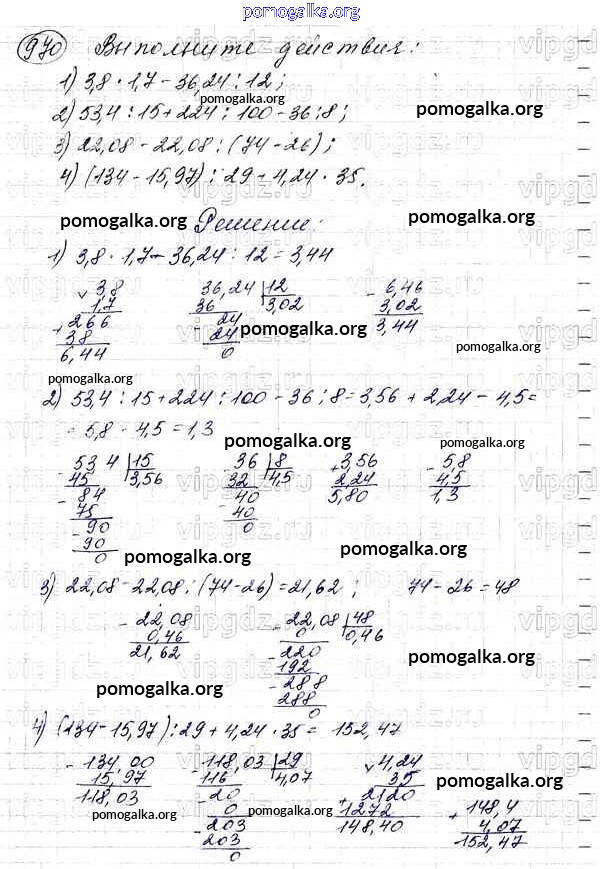 pomogalka.org
970 Выполните действия:
1) 3,8 · 1,7 - 36,24 : 12;
pomogalka.org
2) 53,4 : 15 + 224 : 100 - 36 : 8;
pomogalka.org
3) 22,08 - 22,08 : (74 - 26);
4) (134 - 15,97) : 29 + 4,24 · 35.
pomogalka.org Решение: pomogalka.org
1) 3,8 · 1,7 - 36,24 : 12 = 3,44
3,8 36,24 12 6,46
1,7 36 3,02 3,02
266 24 3,44
38 24 pomogalka.org
6,44 0
pomogalka.org
pomogalka.org
2) 53,4 : 15 + 224 : 100 - 36 : 8 = 3,56 + 2,24 - 4,5 =
= 5,8 - 4,5 = 1,3
pomogalka.org pomogalka.org
53 4 15 36 8 3,56 5,8
45 3,56 32 4,5 2,24 4,5
84 40 5,80 1,3
75 40
90 0
90
0 pomogalka.org pomogalka.org
3) 22,08 - 22,08 : (74 - 26) = 21,62; 74 - 26 = 48
22,08 22,08 48
0,46 0 0,46
21,62 220
192 pomogalka.org
pomogalka.org 288
288
0
4) (134 - 15,97) : 29 + 4,24 · 35 = 152,47
134,00 118,03 29 4,24
15,97 116 4,07 35 pomogalka.org
118,03 20 2120
0 1272 148,4
pomogalka.org pomogalka.org
203 148,40 4,07
203 152,47
0
vipgdz.ru